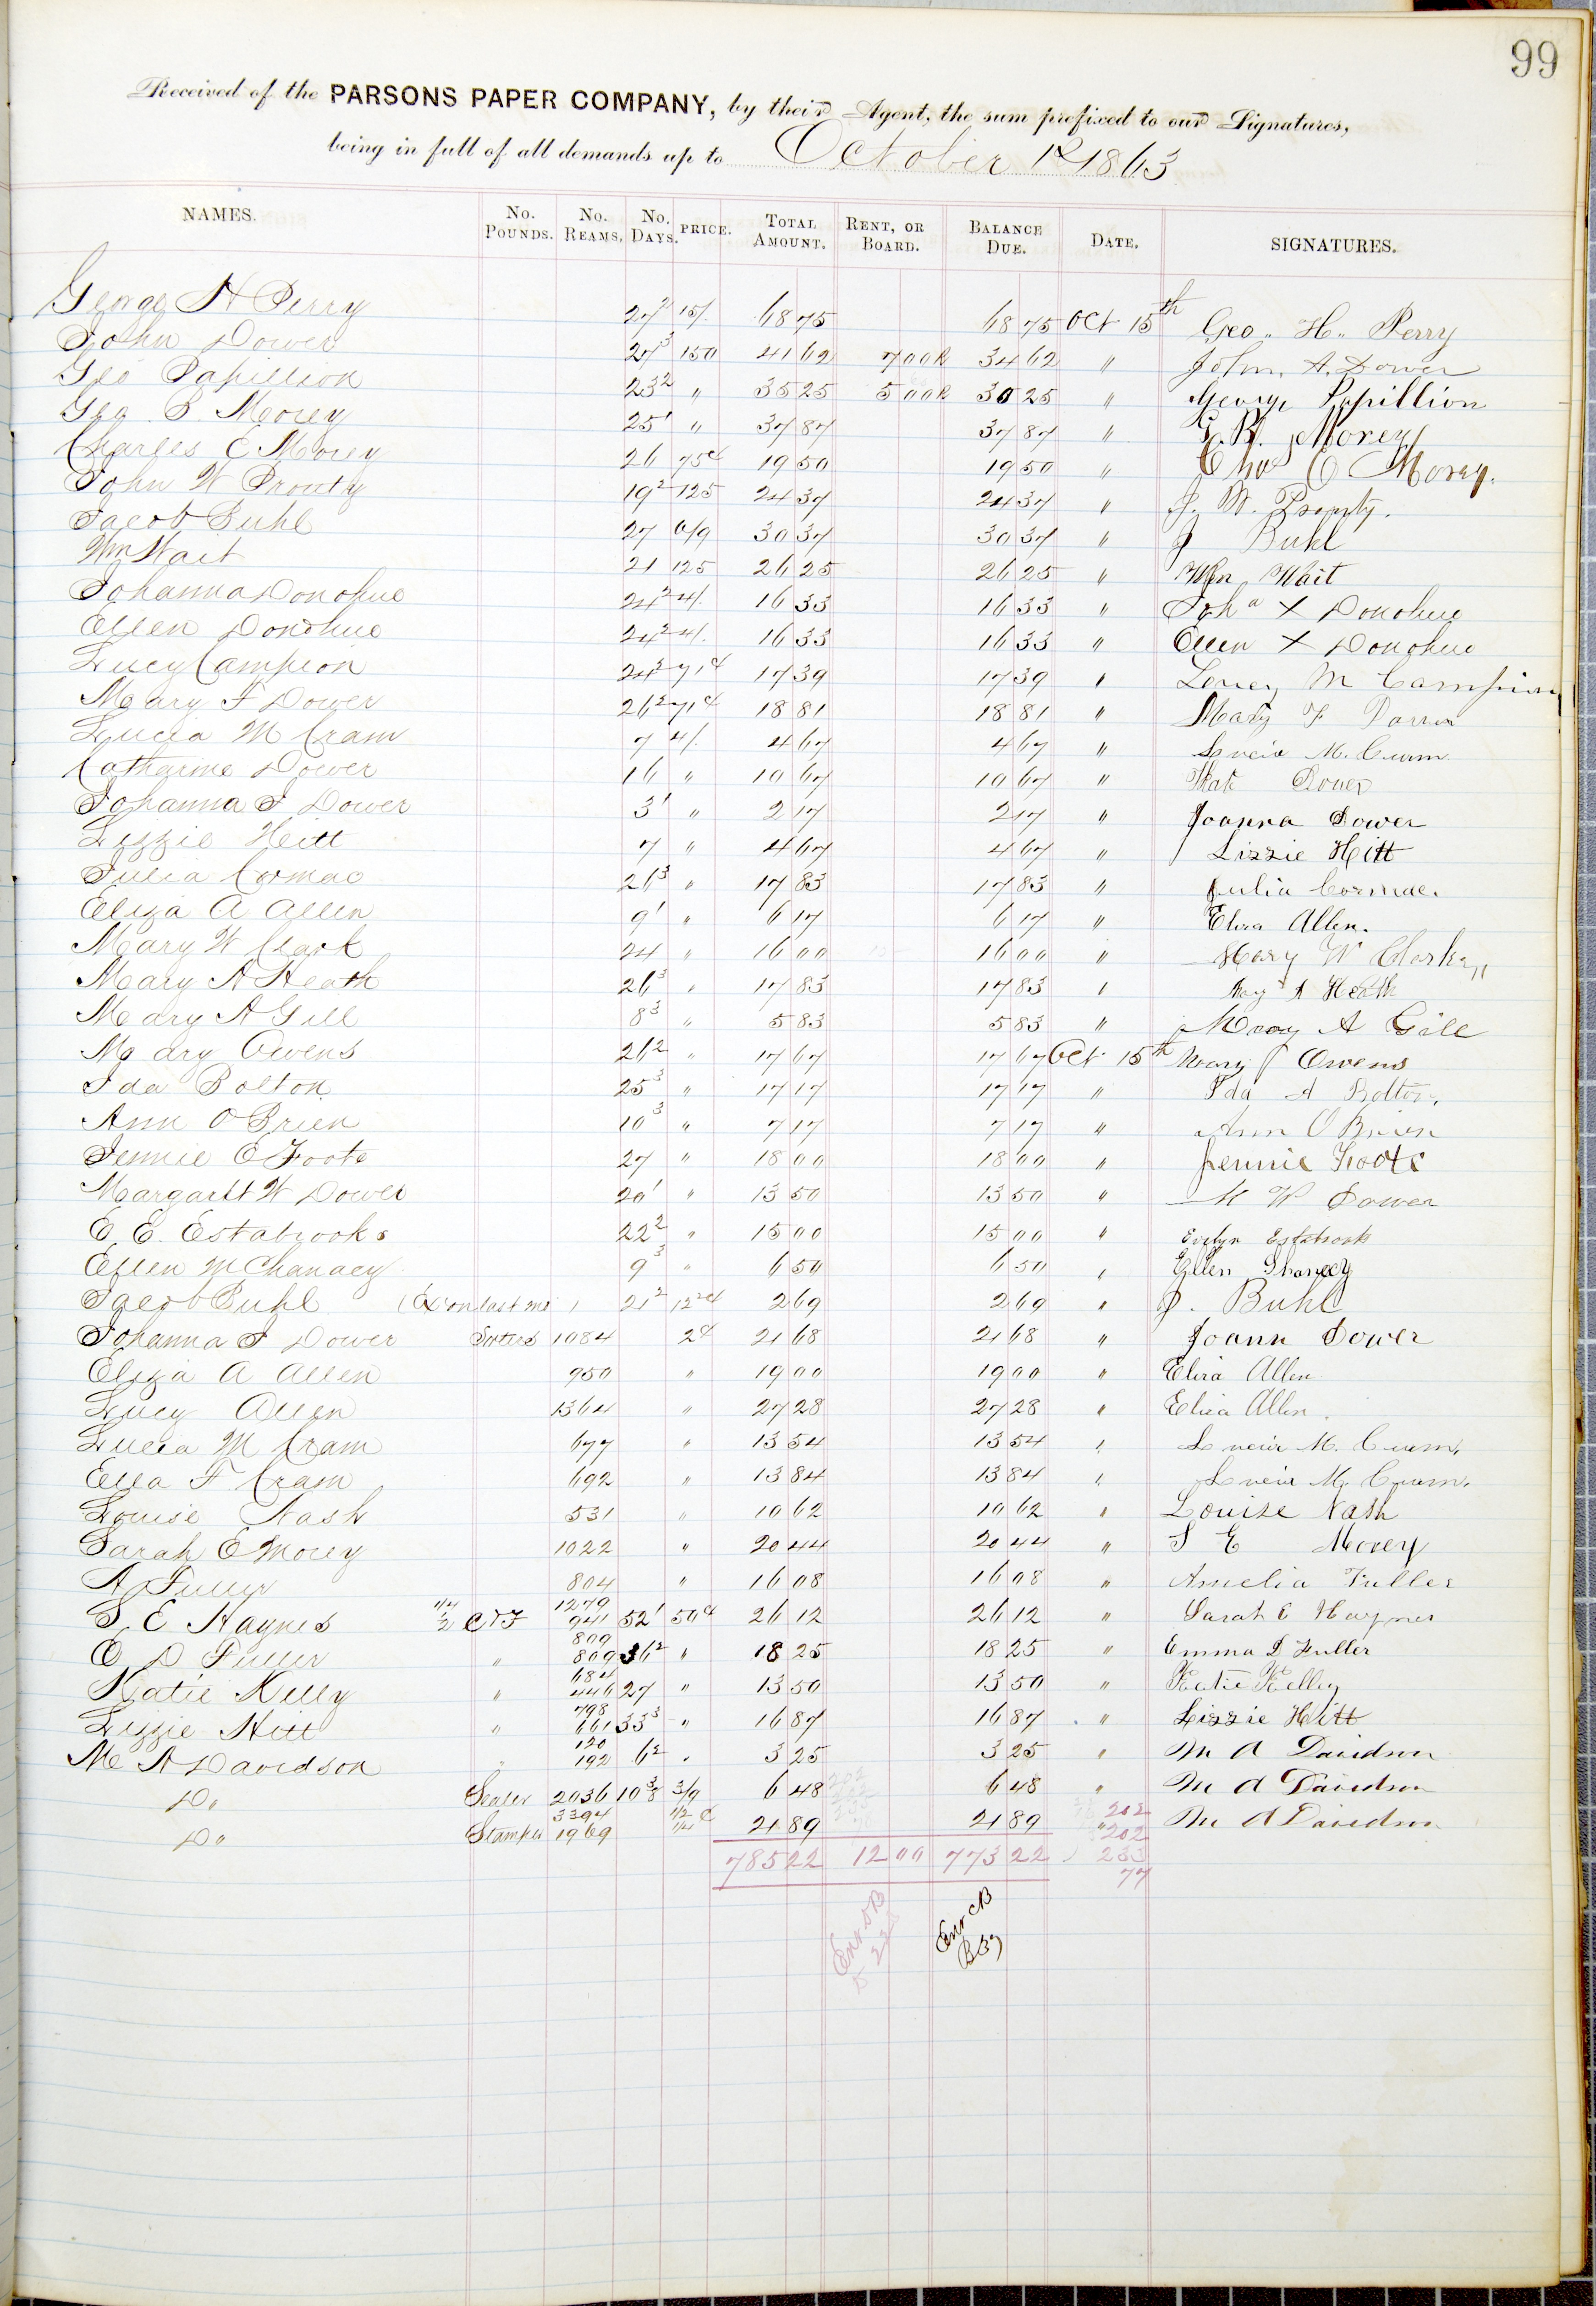 99
Received of the PARSONS PAPER COMPANY, by their Agent, the sum prefixed to our Signatures,
being in full of all demands up to October 1st 1863
NAMES. No. POUNDS. No. REAMS. No. DAYS. PRICE. TOTAL AMOUNT. RENT, OR BOARD. BALANCE DUE. DATE. SIGNATURES.
George H Perry 27 2 15/. 68 75 68 75 Oct 15th Geo. H. Perry
John Dower 27 3 150 41 62 7 00 R 34 62 " John. A. Dower
Geo Papillion 23 2 " 35 25 5 00 R 30 25 " George Papillion
Geo. B. Morey 25 1 " 37 87 37 87 " G. B. Morey
Charles E Morey 26 75¢ 19 50 19 50 " Chas E Morey.
John W Prouty 19 2 125 24 37 24 37 " J. W. Prouty.
Jacob Buhl 27 6/9 30 37 30 37 " J Buhl
Wm Wait 21 125 26 25 26 25 " Wm Wait
Johanna Donohue 24 2 4/. 16 33 16 33 " Joha X Donohue
Ellen Donohue 24 2 4/. 16 33 16 33 " Ellen X Donohue
Lucy Campion 24 3 71¢ 17 39 17 39 " Lucy M Campion
Mary F Dower 26 2 71¢ 18 81 18 81 " Mary F Dower
Lucia M Cram 7 4/. 4 67 4 67 " Lucia M. Cram
Catharine Dower 16 " 10 67 10 67 " Kate Dower
Johanna F Dower 3 1 " 2 17 2 17 " Joanna Dower
Lizzie Hitt 7 " 4 67 4 67 " Lizzie Hitt
Julia Cormac 26 3 " 17 83 17 83 " Julia Cormac.
Eliza A Allen 9 1 " 6 17 6 17 " Eliza Allen.
Mary W Clark 24 " 16 00 16 00 " Mary W Clark
Mary A Heath 26 3 " 17 83 17 83 " Mary A Heath
Mary A Gill 8 3 " 5 83 5 83 " Mary A Gill
Mary Owens 26 2 " 17 67 17 67 Oct 15th Mary Owens
Ida Bolton 25 3 " 17 17 17 17 " Ida A Bolton
Ann O Brien 10 3 " 7 17 7 17 " Ann O Brien
Jennie E Foote 27 " 18 00 18 00 " Jennie Foote
Margaret W Dower 20 1 " 13 50 13 50 " M W Dower
E. E. Estabrooks 22 2 " 15 00 15 00 " Evelyn Estabrook
Ellen McChanacy 9 3 " 6 50 6 50 " Ellen
Jacob Buhl (Ex on last mo ) 21 2 12 2 ¢ 2 69 2 69 " J. Buhl
Johanna F Dower Sorters 1084 2¢ 21 68 21 68 " Joann Dower
Eliza A Allen 950 " 19 00 19 00 " Eliza Allen
Lucy Allen 1364 " 27 28 27 28 " Eliza Allen.
Lucia M Cram 677 " 13 54 13 54 " Lucia M. Cram.
Ella F Cram 692 " 13 84 13 84 " Lucia M. Cram.
Louise Nash 531 " 10 62 10 62 " Louise Nash
Sarah E Morey 1022 " 20 44 20 44 " S E Morey
A Fuller 804 " 16 08 16 08 " Amelia Fuller
S. E Haynes 1/4 1/2 C & F 1279 941 52 1 50¢ 26 12 26 12 " Sarah E Haynes
E D Fuller " 809 809 36 2 " 18 25 18 25 " Emma D Fuller
Katie Kelly " 684 446 27 " 13 50 13 50 " Katie Kelley
Lizzie Hitt " 798 661 33 3 " 16 87 16 87 " Lizzie Hitt
M A Davidson " 120 192 6 2 " 3 25 3 25 " M A Davidson
Do Sealer 2036 10 3/8 3/9 6 48 6 48 " M A Davidson
Do Stamper 3394 1969 1/2 1/4 ¢ 21 89 21 89 " M A Davidson
202
202
233
77
785 22 12 00 773 22